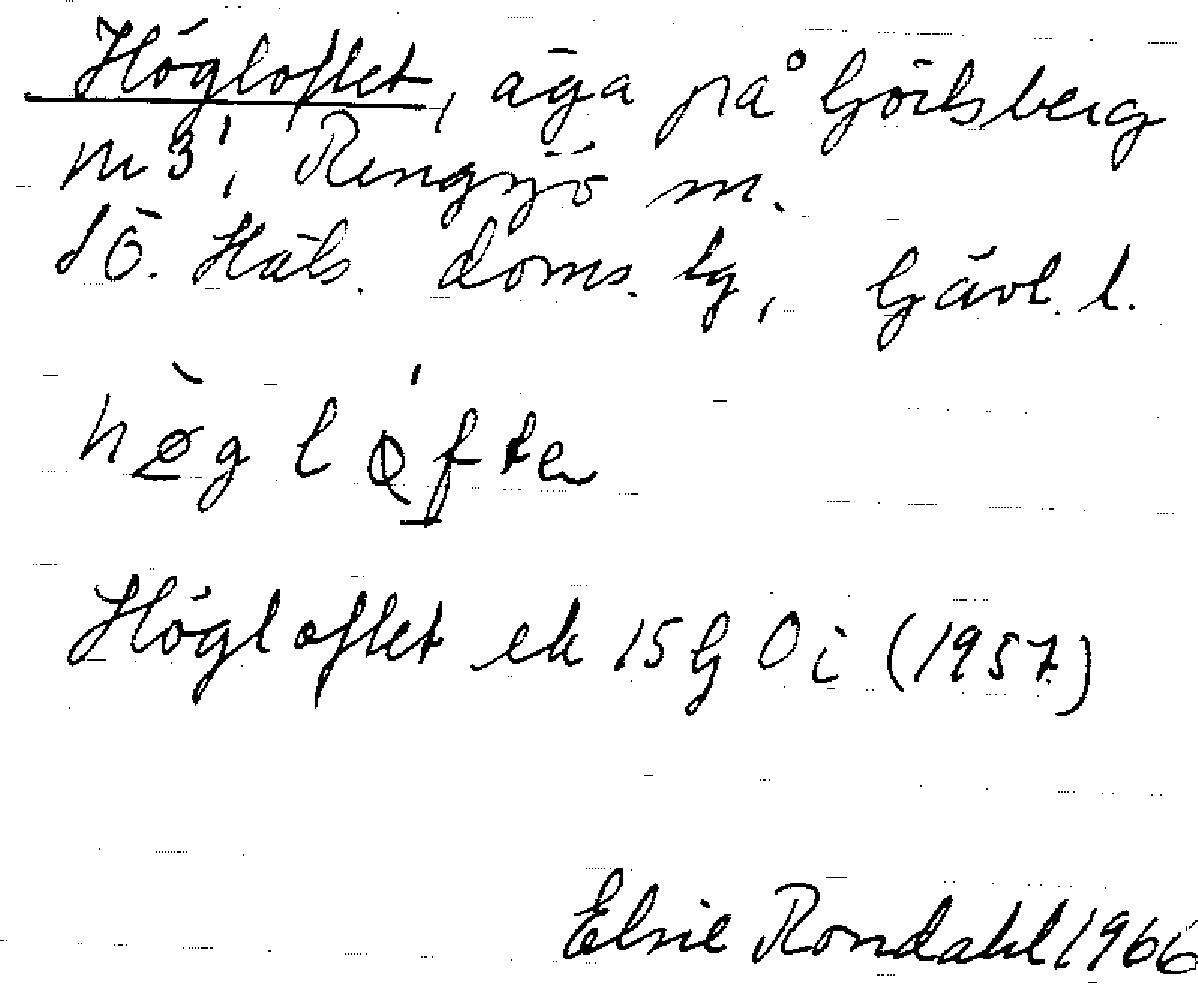 Högloftet, äga på Görtsberg
nr 3, Rengsjö sn.
SÖ. Häls. doms. lg, Gävl. l.
Högloftet ek 15G 0i (1957)
Elsie Rondahl 1966